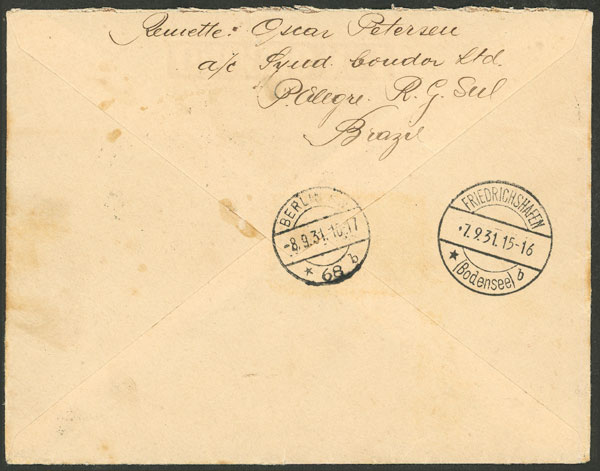 Remette: Oscar Petersen
a/c Synd. Condor Ltd.
P. Alegre. R. G. Sul
Brazil
BERLIN
-8.9.31.16-17
* 68 b
FRIEDRICHSHAFEN
7.9.31.15-16
* (Bodensee) b